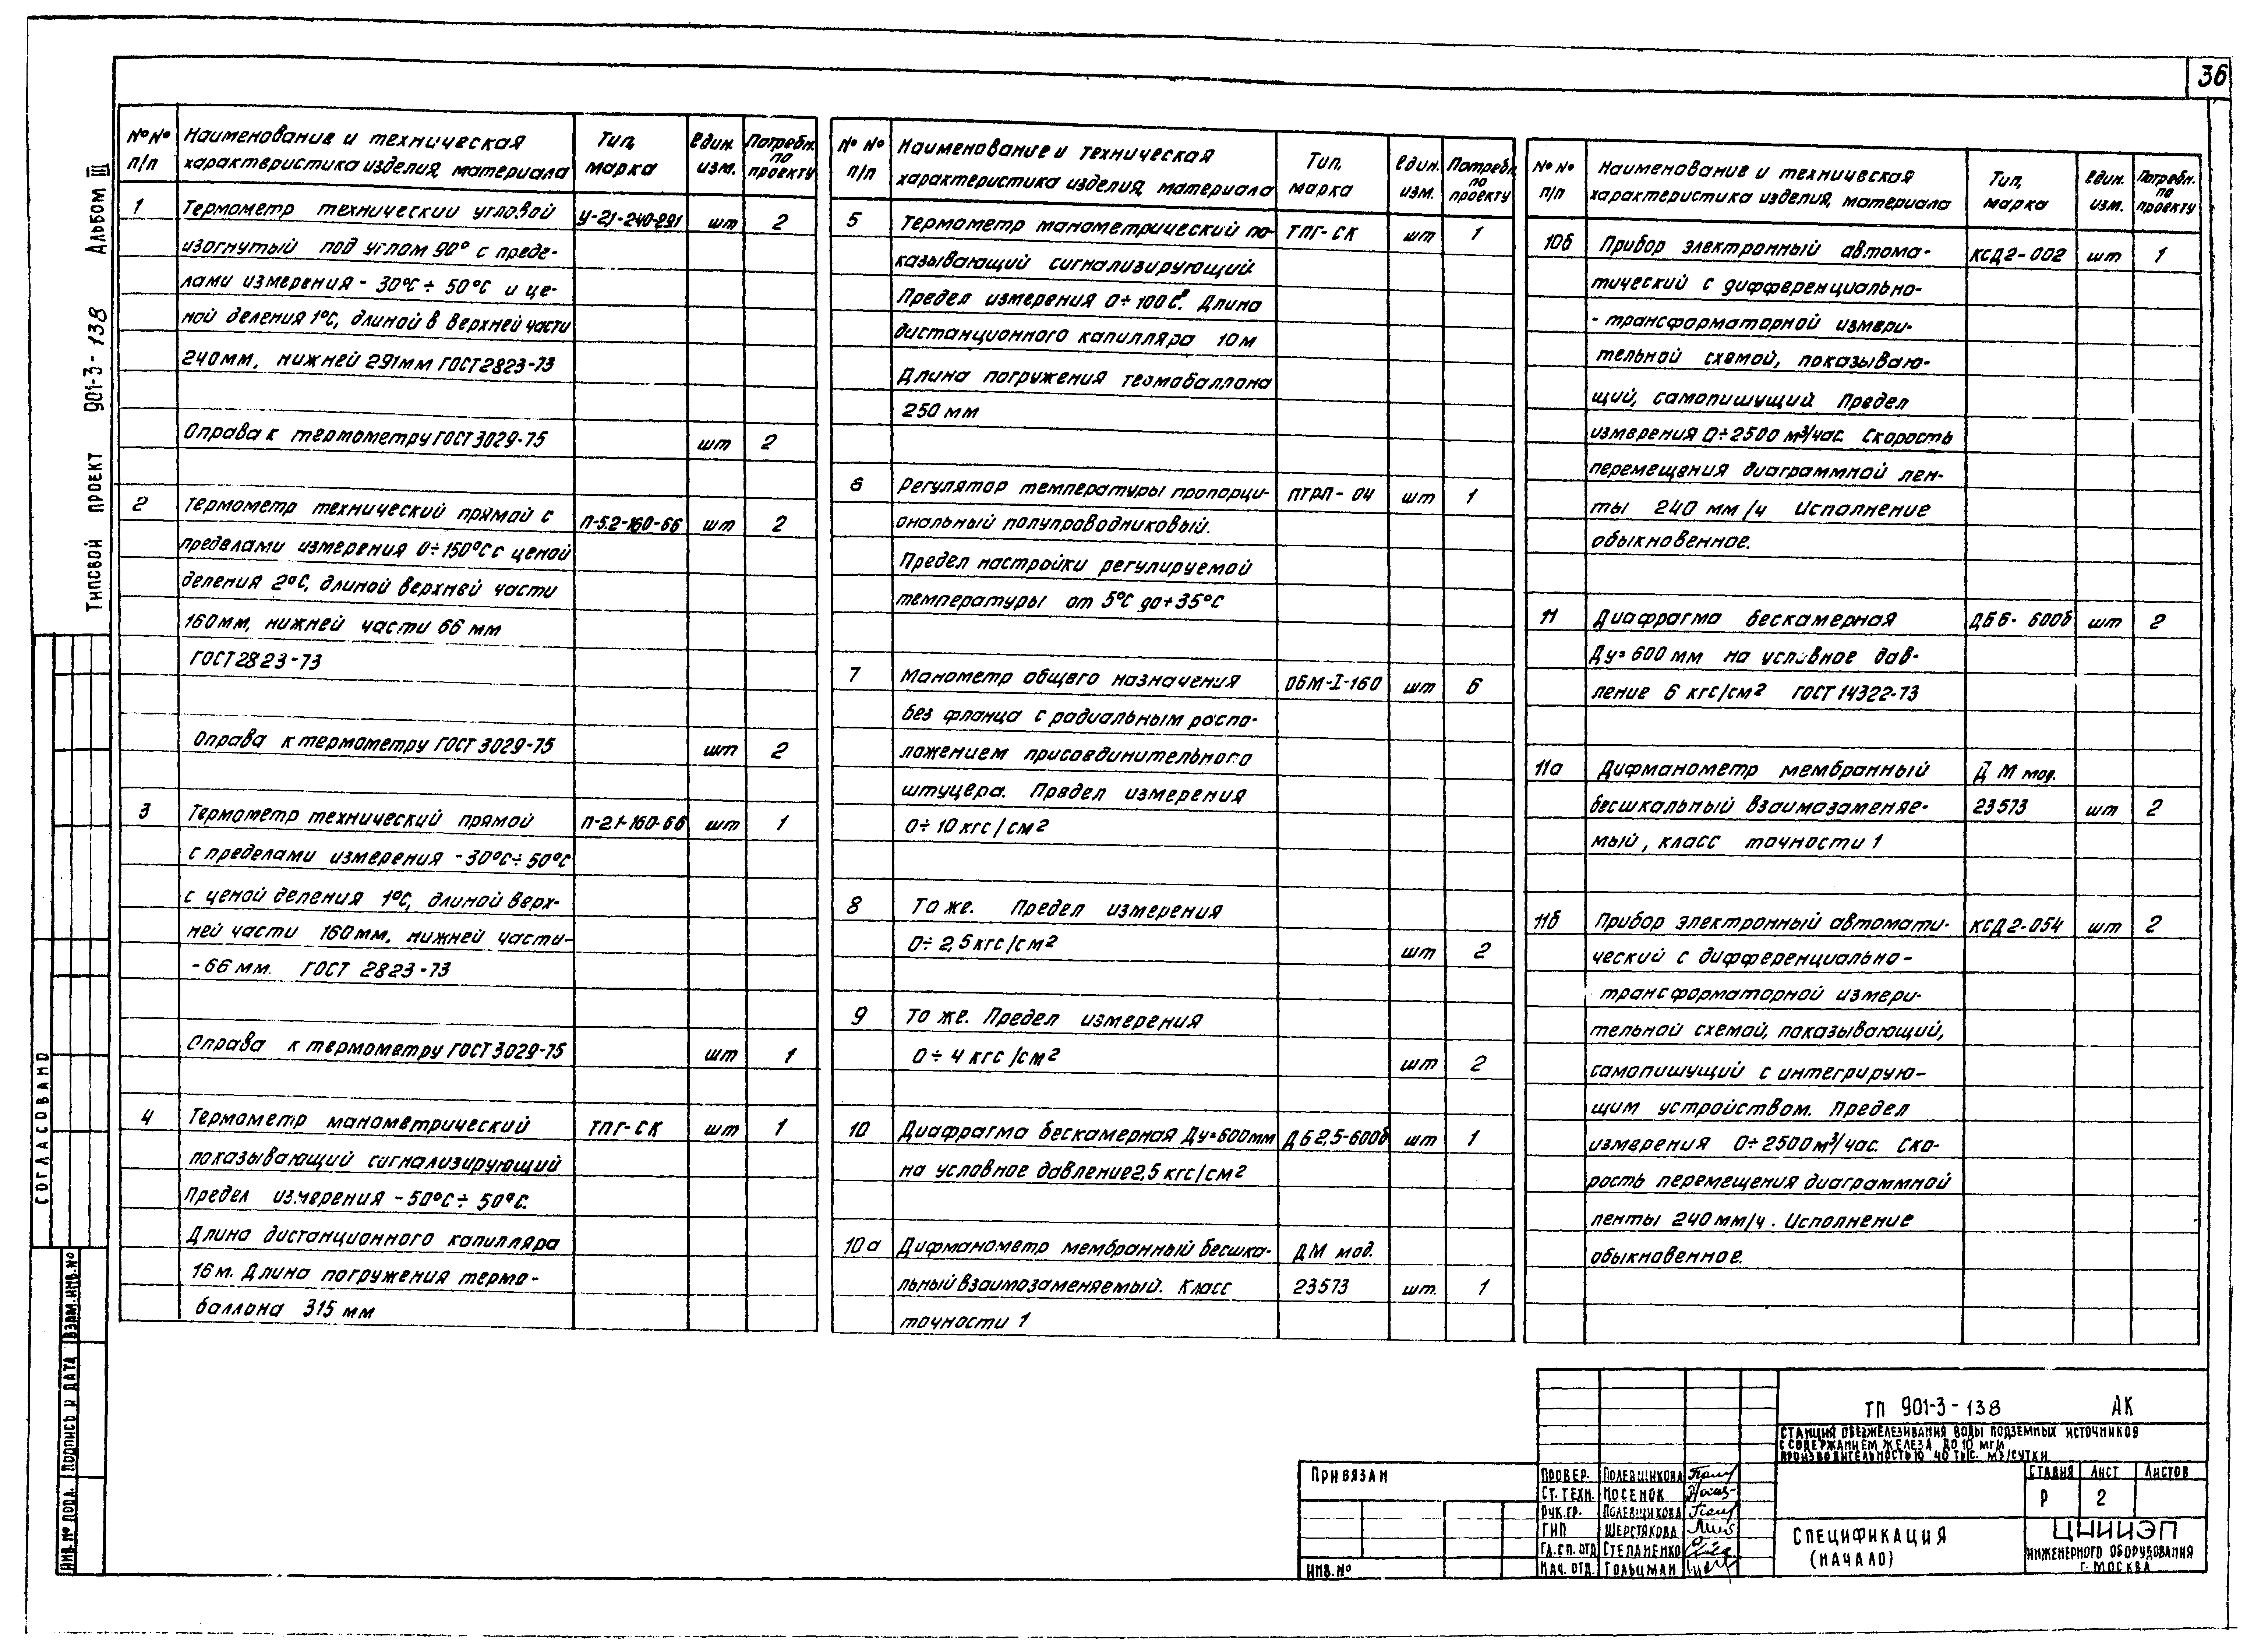 36
Типовой проект 901-3-138 Альбом III
№ № п/п
Наименование и техническая
характеристика изделия, материала
Тип, марка
един. изм.
Потребн. по проекту
1 Термометр технический угловой У-2.1-240-291 шт 2
изогнутый под углом 90° с преде-
лами измерения - 30°С ÷ 50°С и це-
ной деления 1°С, длиной в верхней части
240мм, нижней 291мм ГОСТ 2823-73
Оправа к термометру ГОСТ 3029-75 шт 2
2 Термометр технический прямой с П-5.2-160-66 шт 2
пределами измерения 0÷150°С с ценой
деления 2°С, длиной верхней части
160мм, нижней части 66 мм
ГОСТ 2823-73
Оправа к термометру ГОСТ 3029-75 шт 2
3 Термометр технический прямой П-2.1-160-66 шт 1
с пределами измерения -30°С÷50°С
с ценой деления 1°С, длиной верх-
ней части 160мм, нижней части-
- 66 мм. ГОСТ 2823-73
Оправа к термометру ГОСТ 3029-75 шт 1
4 Термометр манометрический ТПГ-СК шт 1
показывающий сигнализирующий
Предел измерения -50°С÷ 50°С.
Длина дистанционного капилляра
16м. Длина погружения термо-
баллона 315 мм
№ № п/п
Наименование и техническая
характеристика изделия, материала
Тип, марка
един. изм.
Потребн. по проекту
5 Термометр манометрический по- ТПГ-СК шт 1
казывающий сигнализирующий
Предел измерения 0÷100С°. Длина
дистанционного капилляра 10м
Длина погружения термобаллона
250 мм
6 Регулятор температуры пропорци- ПТРП-04 шт 1
ональный полупроводниковый.
Предел настройки регулируемой
температуры от 5°С до+35°С
7 Манометр общего назначения ОБМ-I-160 шт 6
без фланца с радиальным распо-
ложением присоединительного
штуцера. Предел измерения
0÷10 кгс/см2
8 То же. Предел измерения
0÷ 2,5 кгс/см2 шт 2
9 То же. Предел измерения
0÷ 4 кгс/см2 шт 2
10 Диафрагма бескамерная Ду=600мм ДБ2,5-600б шт 1
на условное давление 2,5 кгс/см2
10а Дифманометр мембранный бесшка- ДМ мод.
льный взаимозаменяемый. Класс 23573 шт. 1
точности 1
№ № п/п
Наименование и техническая
характеристика изделия, материала
Тип, марка
един. изм.
Потребн. по проекту
10б Прибор электронный автома- КСД2-002 шт 1
тический с дифференциально-
- трансформаторной измери-
тельной схемой, показываю-
щий, самопишущий. Предел
измерения 0÷2500 м3/час. Скорость
перемещения диаграммной лен-
ты 240 мм/ч Исполнение
обыкновенное.
11 Диафрагма бескамерная ДБ6-600б шт 2
Ду=600 мм на условное дав-
ление 6 кгс/см2 ГОСТ 14322-73
11а Дифманометр мембранный ДМ мод.
бесшкальный взаимозаменяе- 23573 шт 2
мый, класс точности 1
11б Прибор электронный автомати- КСД2-054 шт 2
ческий с дифференциально-
трансформаторной измери-
тельной схемой, показывающий,
самопишущий с интегрирую-
щим устройством. Предел
измерения 0÷2500м3/час. Ско-
рость перемещения диаграммной
ленты 240 мм/ч. Исполнение
обыкновенное.
СОГЛАСОВАНО
Взам.инв.№
Подпись и дата
Инв.№ подл.
Привязан
Инв.№
Провер. Полевщикова
Ст.техн. Мосенок
Рук.гр. Полевщикова
ГИП Шерстякова
Гл.сп.отд Степаненко
Нач.отд. Гольцман
ТП 901-3-138 АК
Станция обезжелезивания воды подземных источников
с содержанием железа до 10 мг/л
производительностью 40 тыс. м3/сутки
Стадия Лист Листов
Р 2
Спецификация
(начало)
ЦНИИЭП
инженерного оборудования
г. Москва